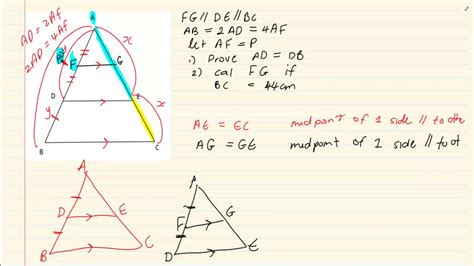 FG // DE // BC
AB = 2AD = 4AF
let AF = P
1) Prove AD = DB
2) cal FG if
BC = 44cm
AE = EC midpoint of 1 side // to othe
AG = GE midpoint of 2 side // to ot
AD = 2AF
2AD = 4AF
A
x
F
G
D
E
x
y
B
C
A
D
E
B
C
A
F
G
D
E